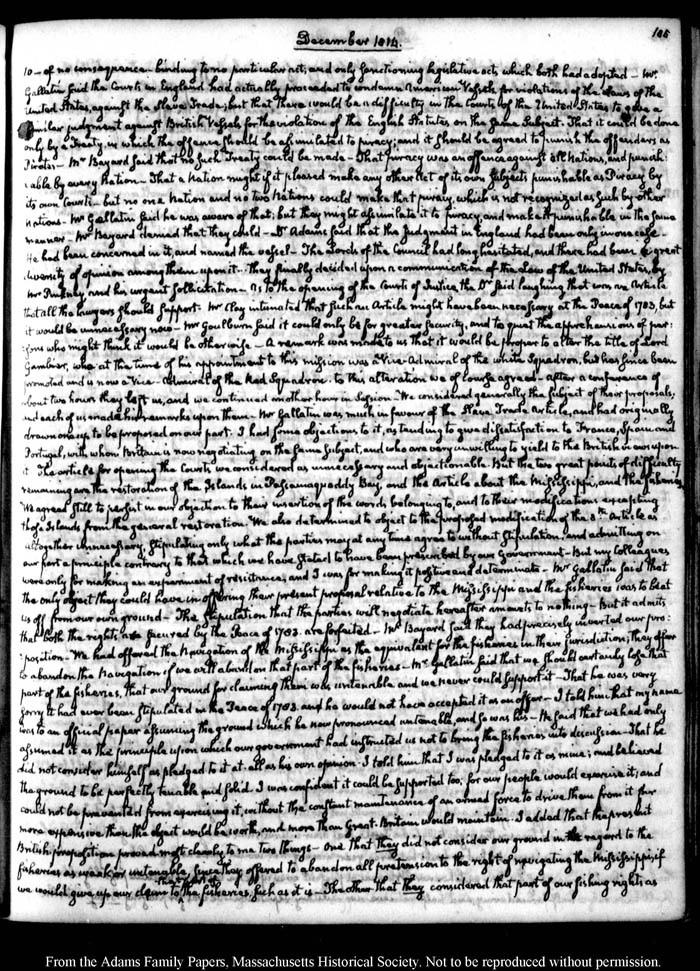 December 1814.
105
10 – of no consequence – binding to no particular act, and only sanctioning legislative acts which both had adopted – Mr.
Gallatin said the Courts in England had actually proceeded to condemn American Vessels for violations of the Laws of the
United States, against the Slave Trade; but that there would be a difficulty in the Courts of the United States, to give a
similar judgment against British Vessels for the violation of the English Statutes on the same Subject. That it could be done
only by a Treaty, in which the offence should be assimilated to piracy; and it should be agreed to punish the offenders as
Pirates – Mr. Bayard said that no such Treaty could be made – That piracy was an offence against all Nations, and punish-
able by every Nation – That a Nation might if it pleased make any other act of its own Subjects punishable as Piracy by
its own Courts – but no one Nation and no two Nations could make that piracy, which is not recognized as such by other
Nations – Mr. Gallatin said he was aware of that; but they might assimilate it to piracy, and make it punishable in the same
manner – Mr. Bayard denied that they could – Dr. Adams said that the judgment in England had been only in one case –
He had been concerned in it, and named the vessel – The Lords of the Council had long hesitated, and there had been great
diversity of opinion among them upon it – They finally decided upon a communication of the Law of the United States, by
Mr. Pinkney and his urgent sollicitation – As to the opening of the Courts of Justice, the Dr. said laughing that was an Article
that all the lawyers should support. Mr. Clay intimated that such an Article might have been necessary at the Peace of 1783, but
it would be unnecessary now – Mr. Goulburn said it could only be for greater security, and to quiet the apprehensions of per-
sons who might think it would be otherwise – A remark was made to us that it would be proper to alter the title of Lord
Gambier, who at the time of his appointment to this mission was a Vice-Admiral of the white Squadron, but has since been
promoted and is now a Vice-Admiral of the Red Squadron. to this alteration we of course agreed – after a conference of
about two hours they left us, and we continued another hour in Session. We considered generally the subject of their proposals;
and each of us made his remarks upon them – Mr. Gallatin was much in favour of the Slave Trade Article, and had originally
drawn one up to be proposed on our part. I had some objections to it, as tending to give dissatisfaction to France, Spain and
Portugal, with whom Britain is now negotiating on the same subject, and who are very unwilling to yield to the British views upon
it. The article for opening the Courts we considered as unnecessary and objectionable. But the two great points of difficulty
remaining are the restoration of the Islands in Passamaquaddy Bay, and the Article about the Mississippi, and the fisheries.
We agreed still to persist in our objection to their insertion of the words belonging to, and to their modifications excepting
those Islands from the general restoration. We also determined to object to the proposed modification of the 8th. Article as
altogether unnecessary, stipulating only what the parties may at any time agree to without stipulation, and admitting on
our part a principle contrary to that which we have stated to have been prescribed by our Government – But my Colleagues
were only for making an experiment of resistance, and I was for making it positive and determinate – Mr. Gallatin said that
the only object they could have in offering their present proposal relative to the Mississippi and the fisheries was to beat
us off from our own ground – The stipulation that the parties will negotiate hereafter amounts to nothing – But it admits
that both the rights, as secured by the Peace of 1783. are forfeited – Mr. Bayard said they had precisely inverted our pro-
position – We had offered the Navigation of the Mississippi as the equivalent for the fisheries in their jurisdiction; they offer
to abandon the Navigation if we will abandon that part of the fisheries – Mr. Gallatin said that we should certainly lose that
part of the fisheries, that our ground for claiming them was untenable and we never could support it – That he was very
sorry it had ever been stipulated in the Peace of 1783. and he would not have accepted it as an offer – I told him that my name
was to an official paper assuming the ground which he now pronounced untenable, and so was his – He said that we had only
assumed it as the principle upon which our government had instructed us not to bring the fisheries into discussion – That he
did not consider himself as pledged to it at all as his own opinion. I told him that I was pledged to it as mine; and believed
the ground to be perfectly tenable and solid. I was confident it could be supported too; for our people would exercise it; and
could not be prevented from exercising it, without the constant maintenance of an armed force to drive them from it far
more expensive than the object would be worth, and more than Great-Britain would maintain. I added that the present
British proposition proved most clearly to me two things – One that they did not consider our ground in regard to the
fisheries as weak or untenable, since they offered to abandon all pretension to the right of navigating the Mississippi, if
we would give up our claim to that part of the fisheries, such as it is – The other that they considered that part of our fishing rights as
From the Adams Family Papers, Massachusetts Historical Society. Not to be reproduced without permission.